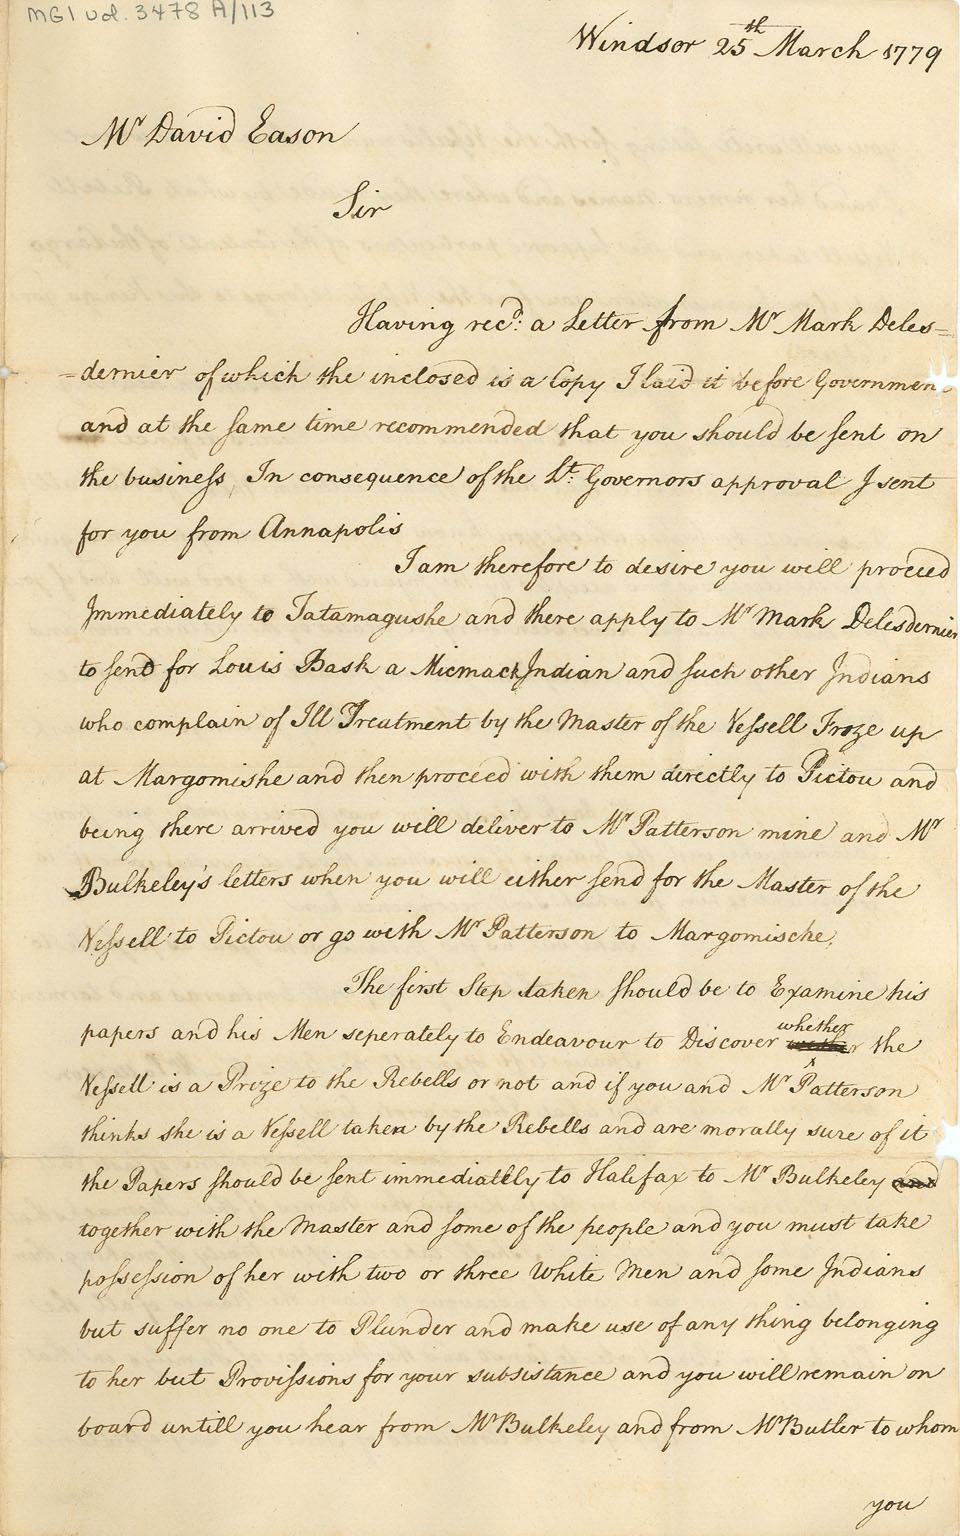 MG1 vol. 3478 A/113
Windsor 25th March 1779
Mr David Eason
Sir
Having recd: a Letter from Mr Mark Deles=
=dernier of which the inclosed is a Copy I laid it before Governmen
and at the same time recommended that you should be sent on
the business, In consequence of the Lt: Governors approval I sent
for you from Annapolis
I am therefore to desire you will proceed
Immediately to Tatamagushe and there apply to Mr Mark Delesdernier
to send for Louis Bask a Micmack Indian and such other Indians
who complain of Ill Treatment by the Master of the Vessell Froze up
at Margomishe and then proceed with them directly to Pictou and
being there arrived you will deliver to Mr Patterson mine and Mr
Bulkeley's letters when you will either send for the Master of the
Vessell to Pictou or go with Mr Patterson to Margomische,
The first Step taken should be to Examine his
papers and his Men seperately to Endeavour to Discover whether the
Vessell is a Prize to the Rebells or not and if you and Mr Patterson
thinks she is a Vessell taken by the Rebells and are morally sure of it
the Papers should be sent immediatlly to Halifax to Mr Bulkeley and
together with the Master and some of the people and you must take
possession of her with two or three White Men and some Indians
but suffer no one to Plunder and make use of any thing belonging
to her but Provissions for your subsistance and you will remain on
board untill you hear from Mr Bulkeley and from Mr Butler to whom
you